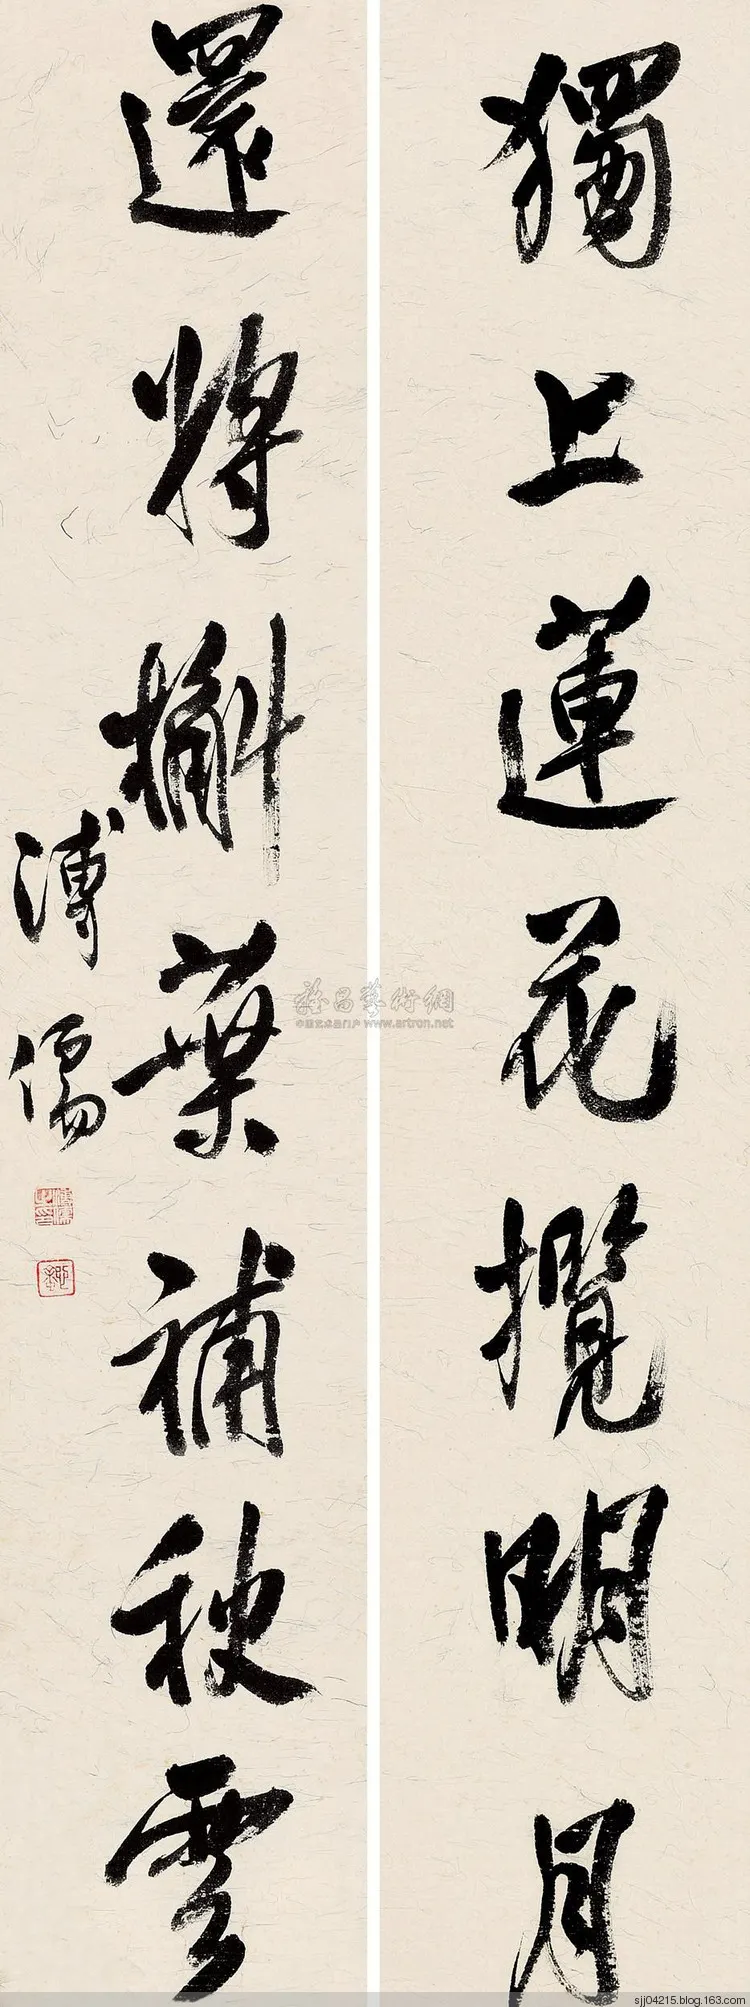 獨上蓮花攬明月
還將槲葉補秋雲
溥儒
雅昌藝術網
中国艺术品门户 www.artron.net
sjj04215.blog.163.com